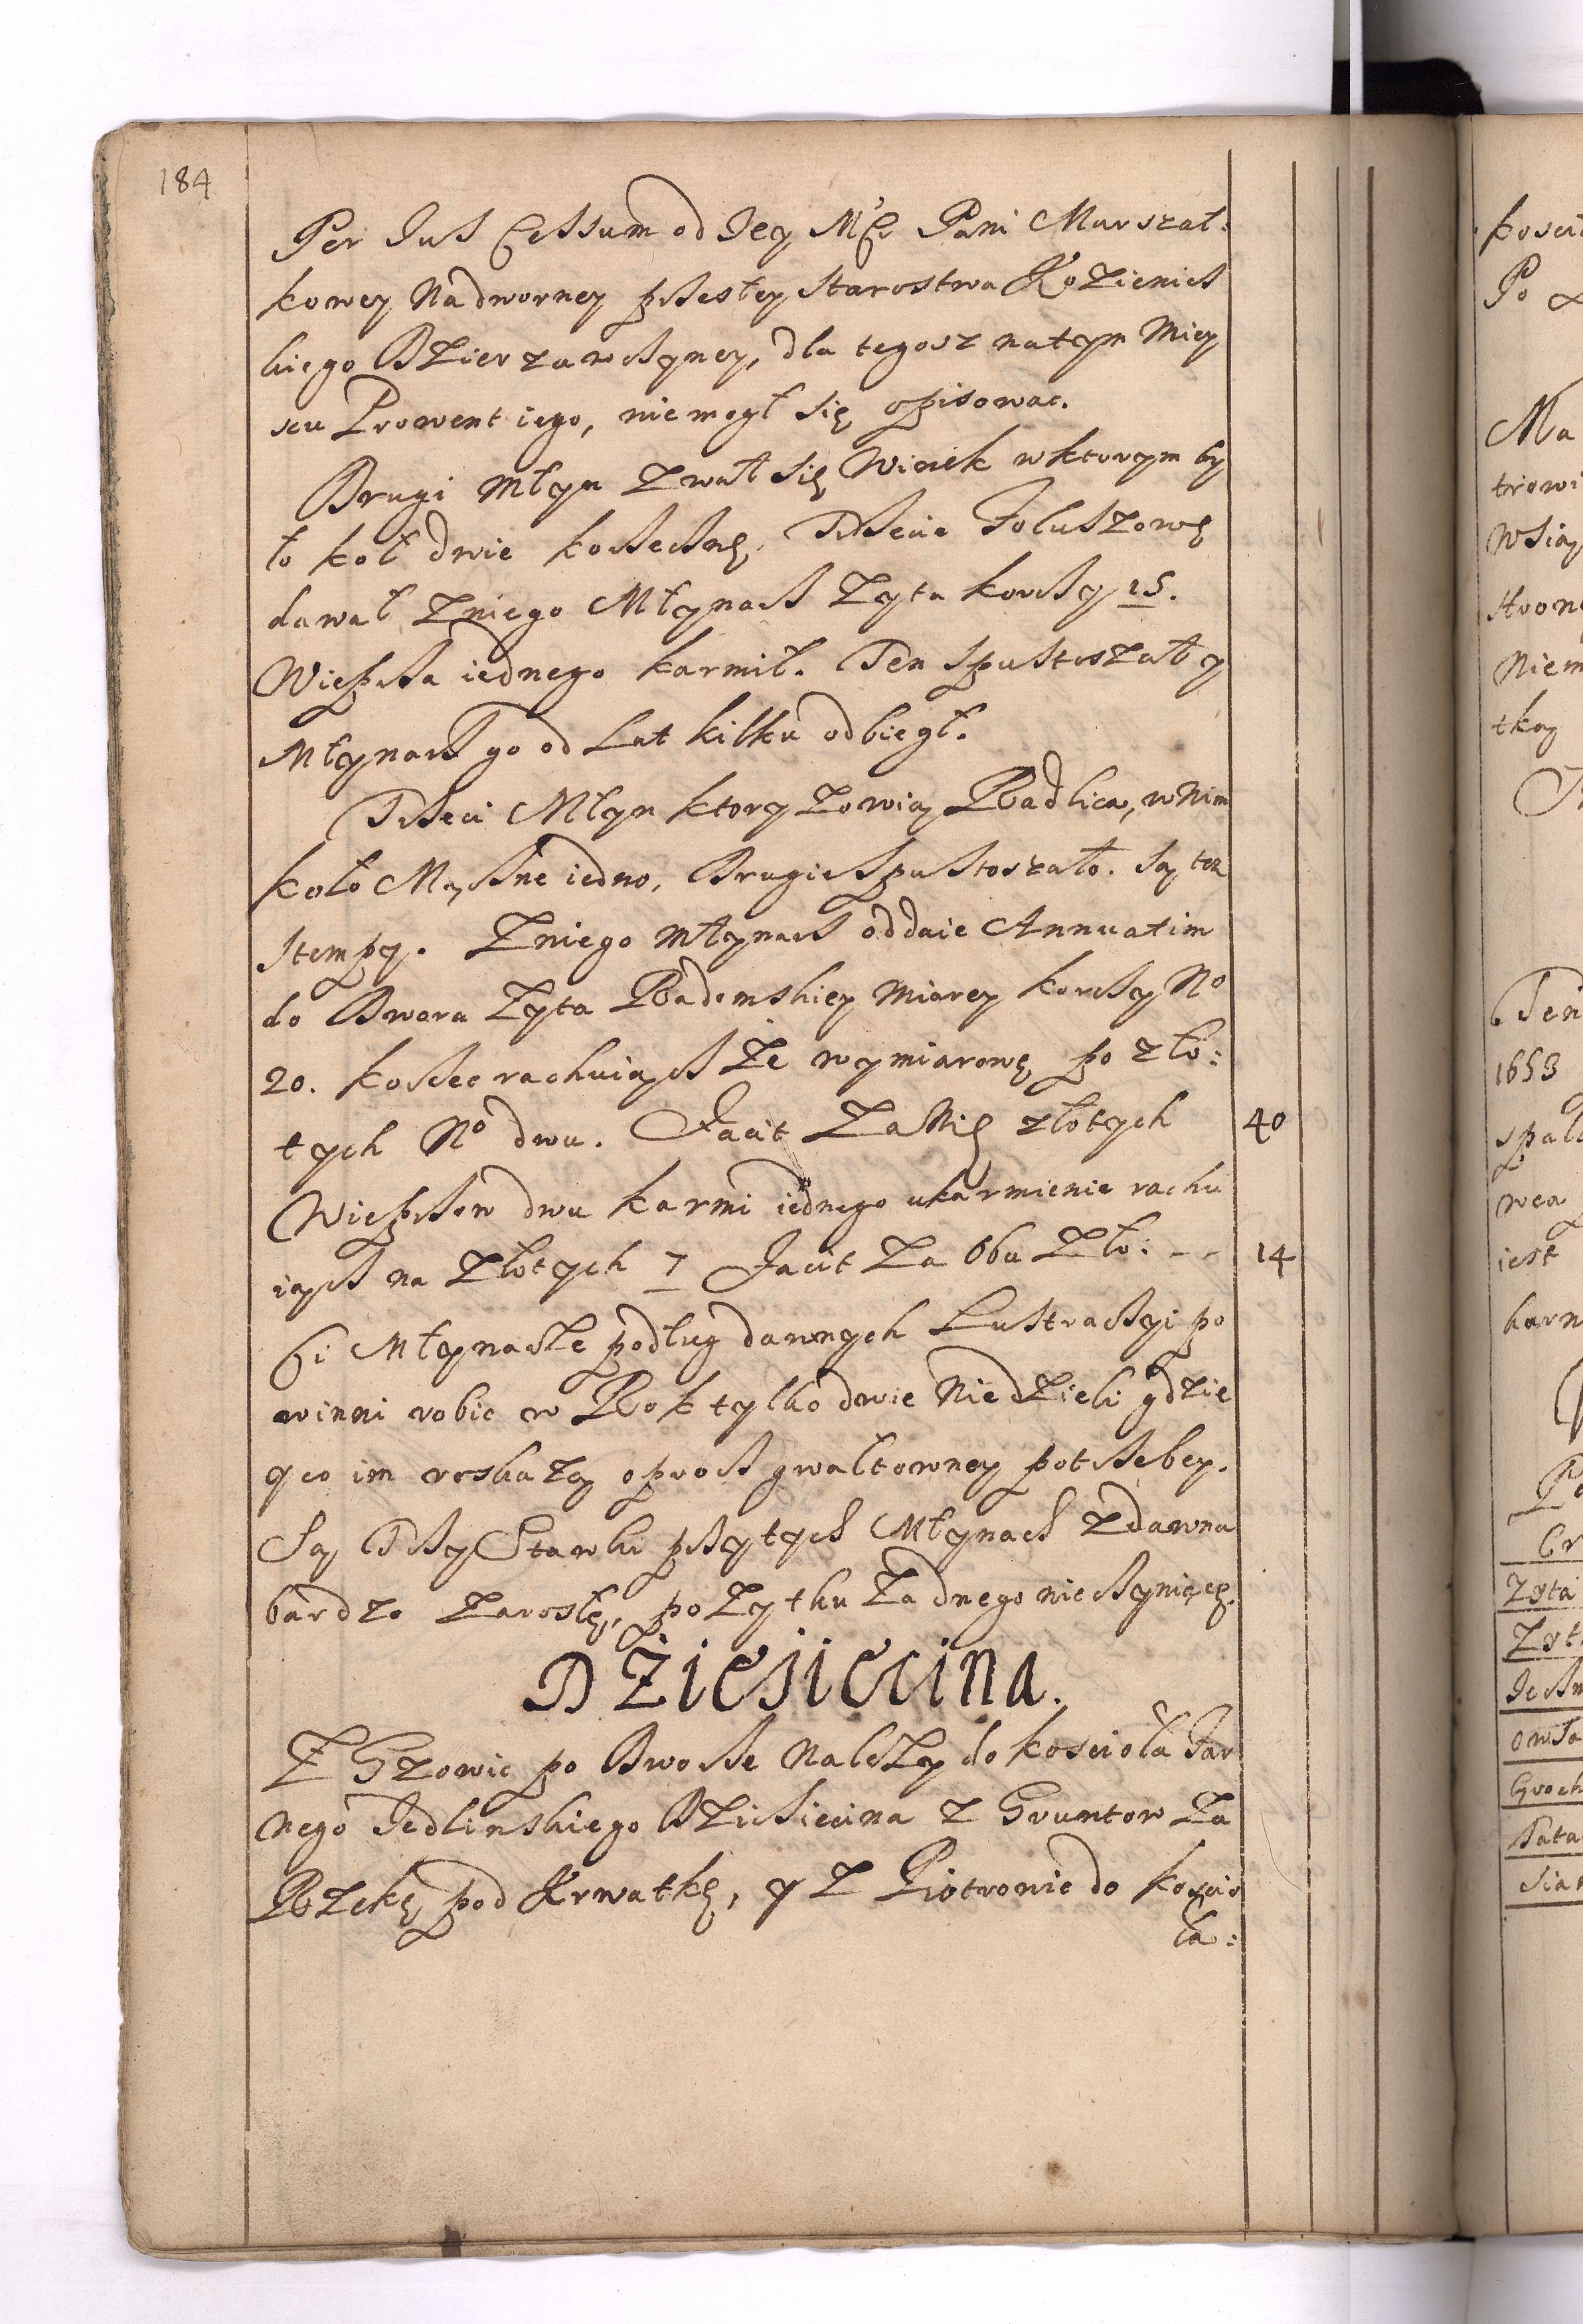 184
Per Jus Cessum od Jey Mći Pani Marszał:
kowey Nadworney przeszłey Starostwa Kozienics
kiego Dzierzawczyney, dla tegosz natym Miey
scu Prowent iego, niemogł się opisowac.
Drugi Młyn Zwał się Wiącek wktorym by
ło koł dwie korzeczne, Trzecie Foluszowe
dawał Zniego Młynarz Zyta korcy 15.
Wieprza iednego karmił. Ten Spustoszał y
Młynarz go od Lat kilku odbiegł.
Trzeci Młyn ktory Zowią Radlica, w Nim
koło Mączne iedno, Drugie Spustoszało. Są tez
stempy. Zniego młynarz oddaie Annuatim
do Dwora Zyta Radomskiey miarey korcy No
20. korzec rachuiącz Ze wymiarowe po zło:
tych No dwu. Facit Za Nie złotych 40
Wieprzow dwu karmi iednego ukarmienie rachu
iącz na Złotych 7 Facit Za Obu Zło: -- 14
Ci Młynarze podług dawnych Lustraczyi po
winni robic w Rok tylko dwie Niedzieli gdzie
y co im roskazą oprocz gwałtowney potrzebey.
Są Trzy Stawki przy tych Młynach Zdawna
bardzo Zarosłe, pozytku Zadnego nieczyniące.
DŻiesiecina.
Z Gzowic po Dworze Nalezy do kościoła Far
nego Jedlinskiego Dziesiecina z Gruntow Za
Rzeke pod Krwatke, y Z Piotrowic do kościo
ła: